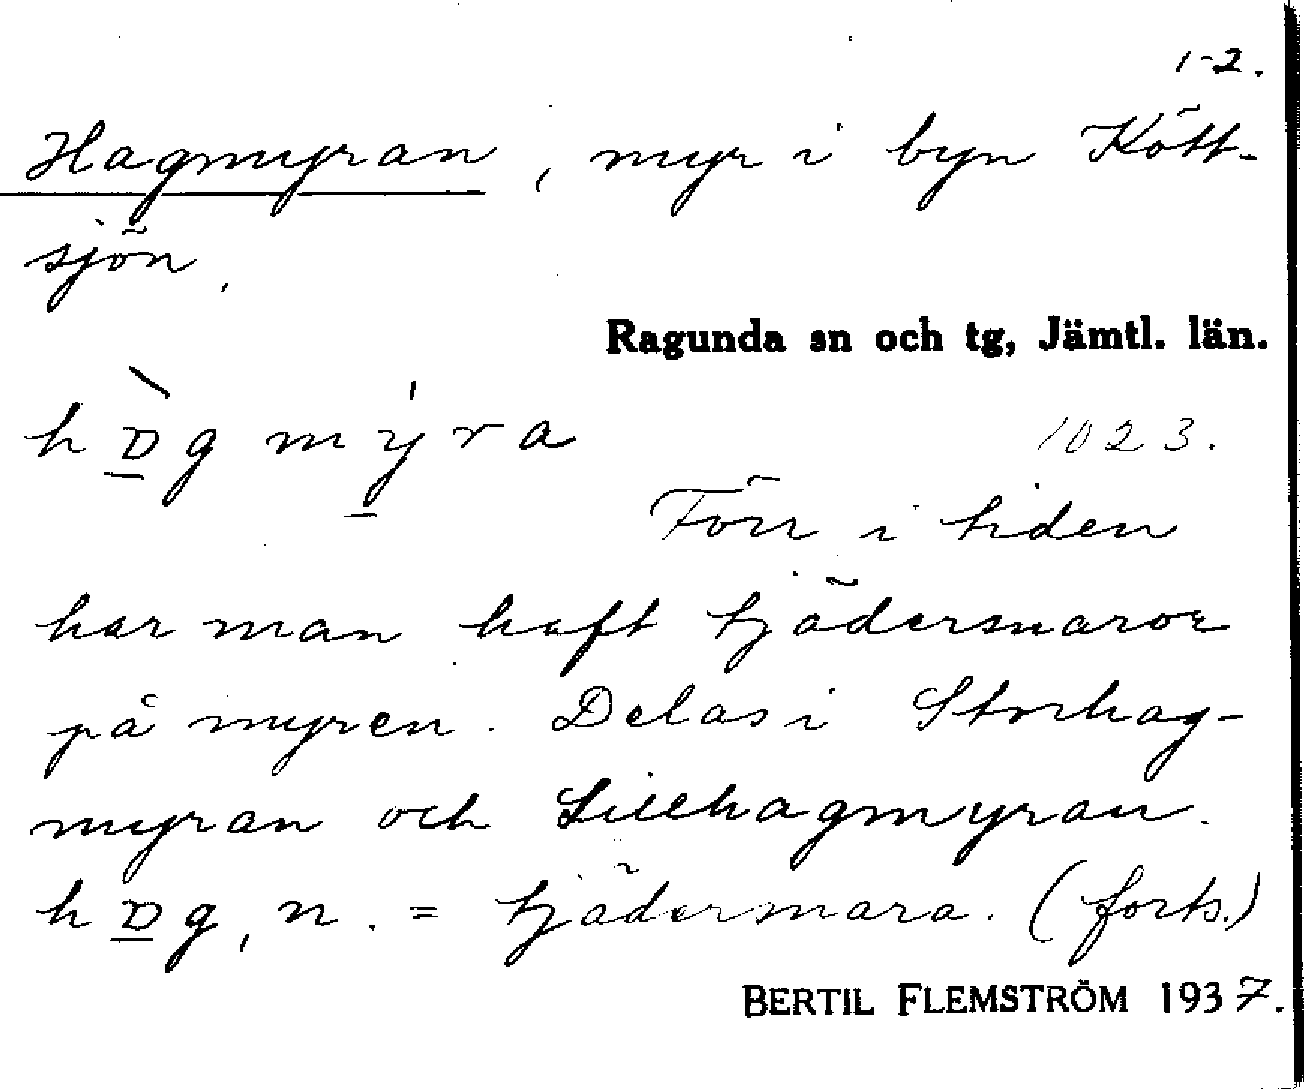 1-2.
Hagmyran, myr i byn Kött-
sjön.
Ragunda sn och tg, Jämtl. län.
myra
1023.
Förr i tiden
har man haft tjädersnaror
på myren. Delas i Storhag-
myran och Lillhagmyran.
n. = tjädersnara. (forts.)
BERTIL FLEMSTRÖM 1937.